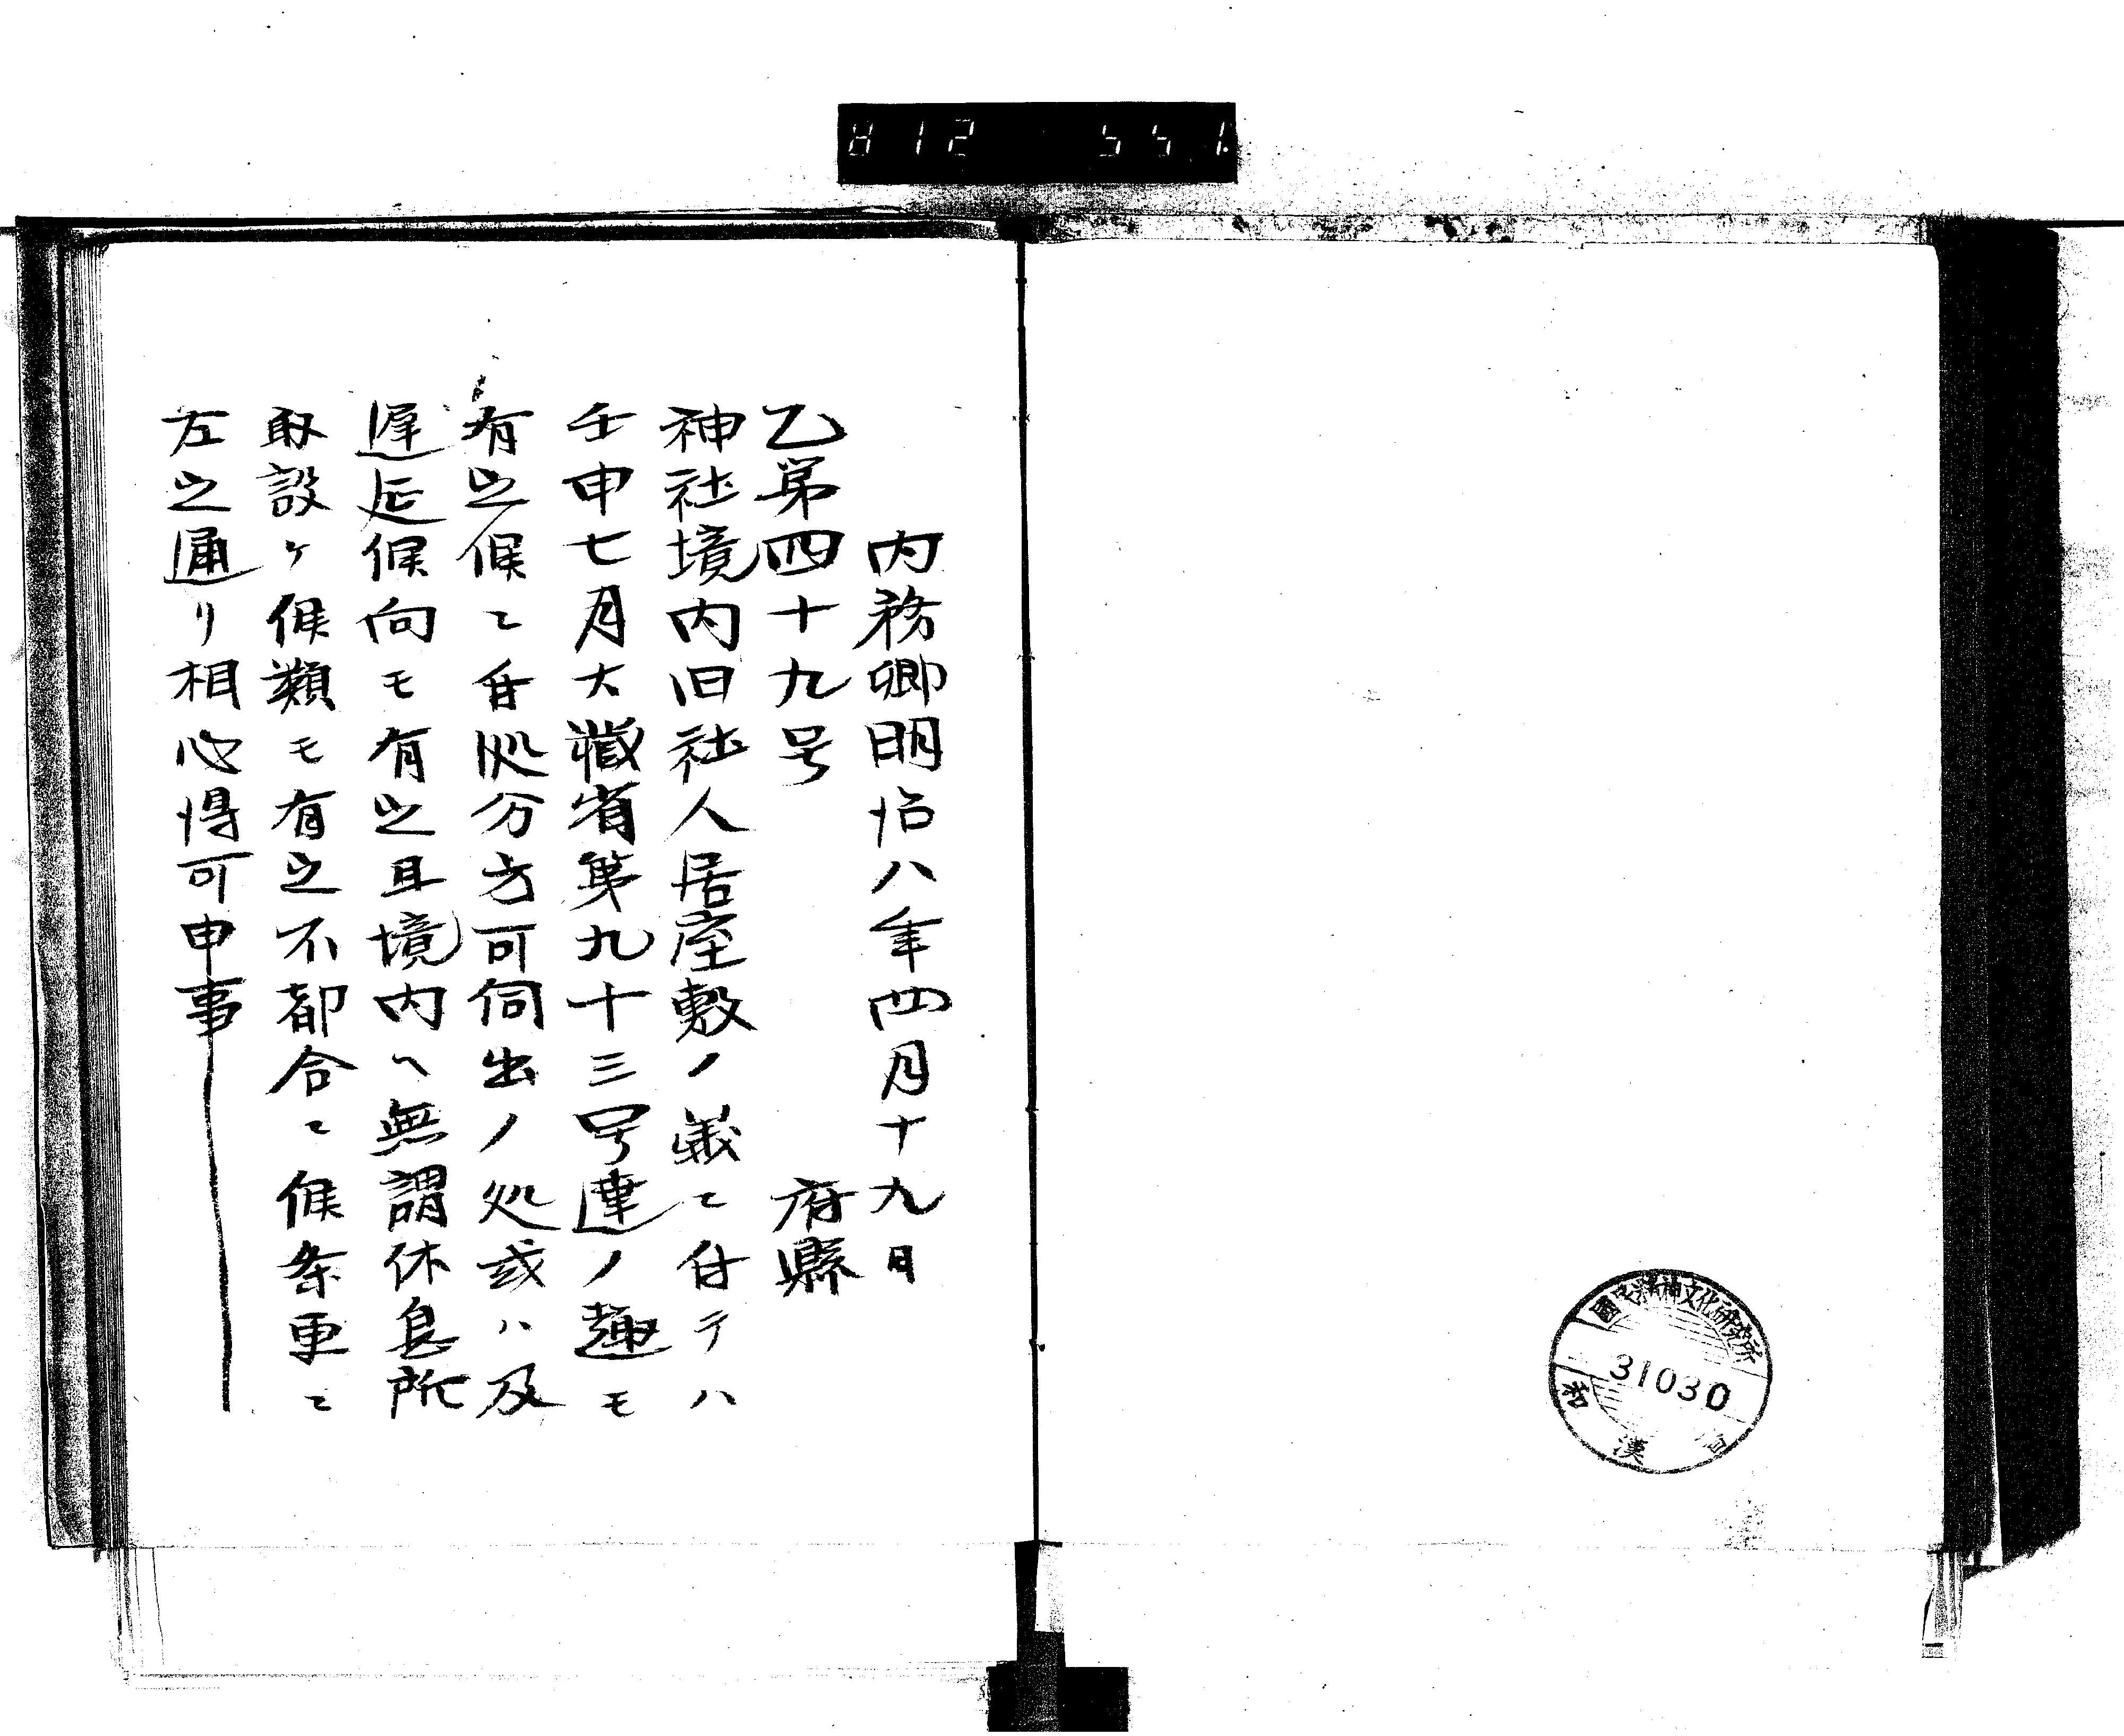 812 551
國民精神文化研究所
31030
和漢
内務卿明治八年四月十九日
乙第四十九号 府縣
神社境内旧社人居座敷ノ義ニ付テハ
壬申七月大蔵省第九十三号達ノ趣モ
有之候ニ付処分方可伺出ノ処或ハ及
遅延候向モ有之且境内ヘ無謂休息所
取設ケ候類モ有之不都合ニ候条更ニ
左之通リ相心得可申事